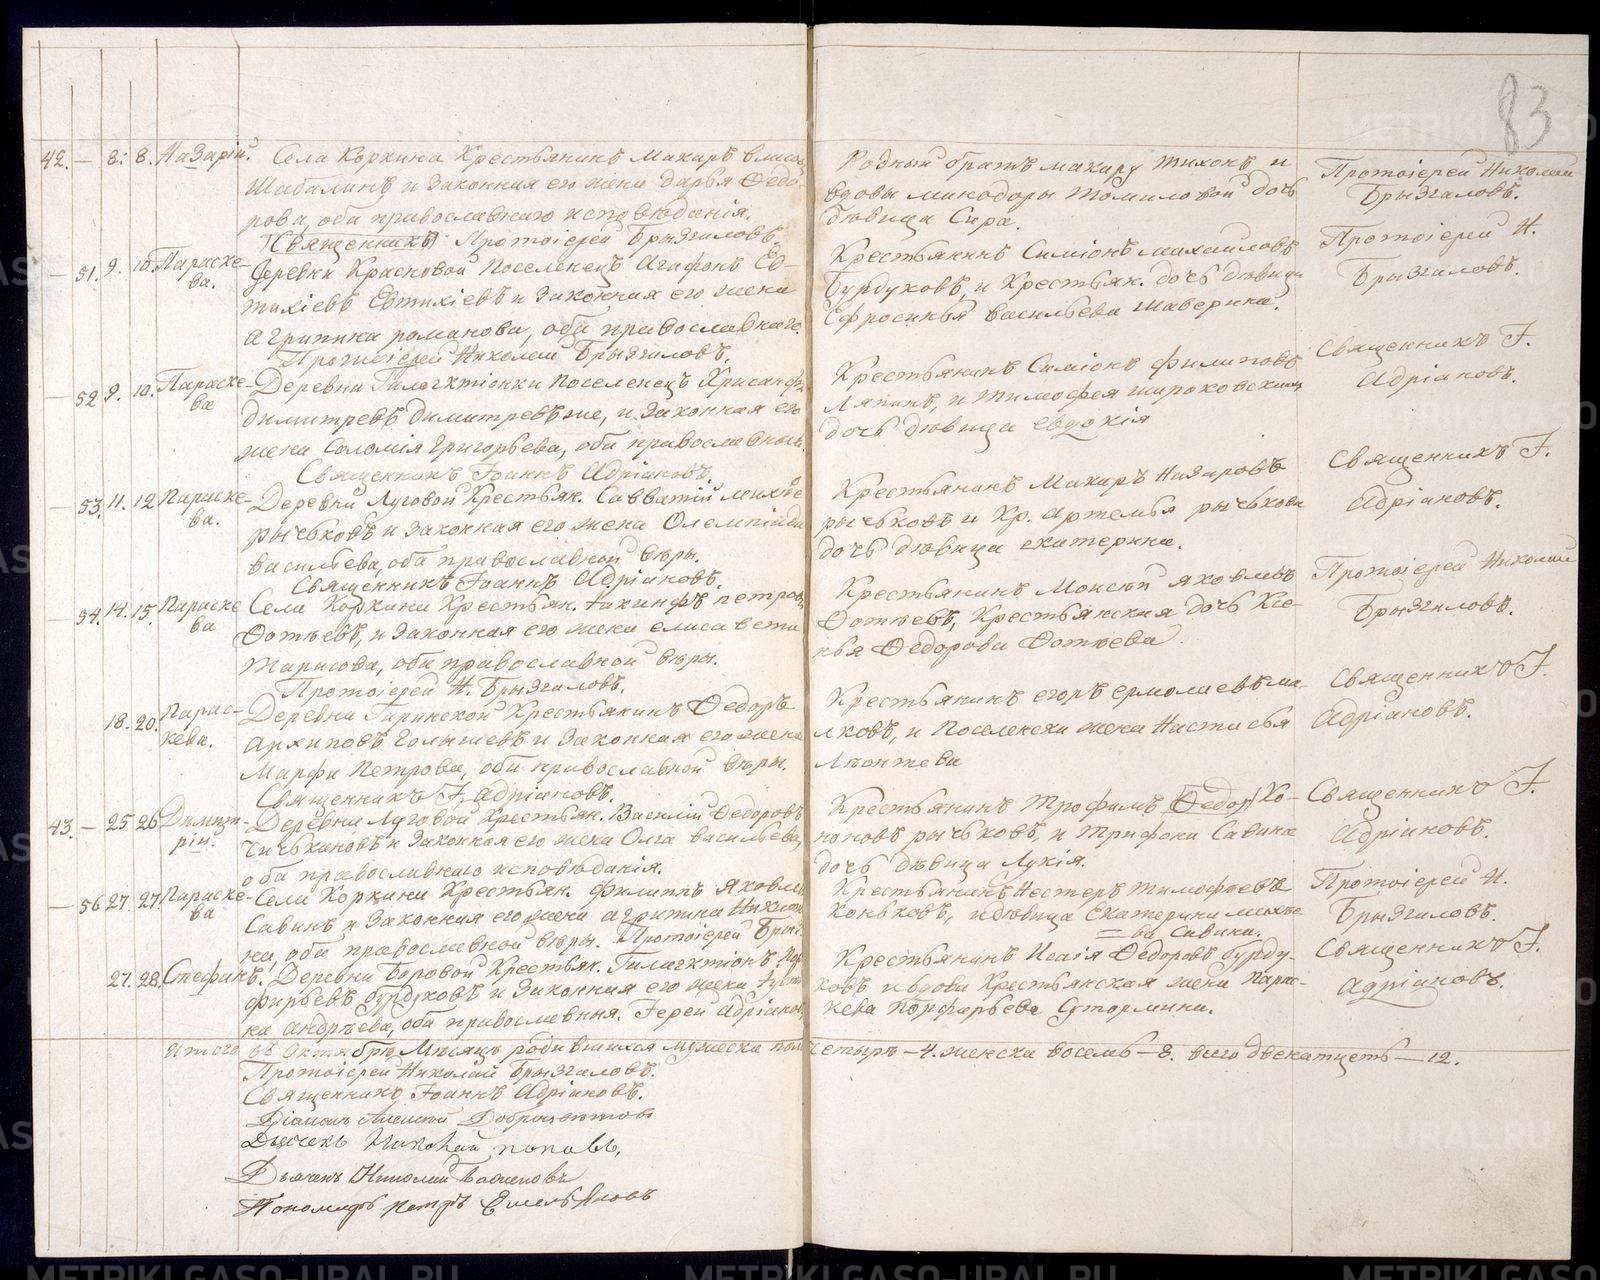 83
42. — 8. 8. Назарій. Села Коркина Крестьянинъ Макаръ власов
Шабалинъ и законная его жена дарья Ѳедо-
рова, оба православнаго исповѣданія.
Священникъ Протоіерей Брызгаловъ.
Родный братъ макару тихонъ и
вдовы минодоры томиловой дочь
дѣвица Сира.
Протоіерей Николай
Брызгаловъ.
— 51. 9. 10. Параске-
ва.
Деревни Красковой Поселенецъ Агафонъ Ев-
тихіевъ Евтихіевъ и законная его жена
агрипина романова, оба православнаго.
Протоіерей Николай Брызгаловъ.
Крестьянинъ Симіонъ михаиловъ
Бурдуковъ, и Крестьян. дочь дѣвица
Ефросинья васильева шаверина.
Протоіерей Н.
Брызгаловъ.
— 52 9. 10. Параске-
ва
Деревни Галахтіонки Поселенецъ Хрисанфъ
димитревъ димитревъ же, и законная его
жена Соломія григорьева, оба православныя.
Священникъ Іоаннъ Адріановъ.
Крестьянинъ Симіонъ филиповъ
Ляпинъ, и тимофея широковскихъ
дочь дѣвица евдокія
Священникъ І.
Адріановъ.
— 53. 11. 12 Параске-
ва.
Деревни Луговой Крестьян. Савватій михѣе
рычьковъ и законная его жена Олемпіада
васильева, оба православной вѣры.
Священникъ Іоаннъ Адріановъ.
Крестьянинъ Макаръ Назаровъ
рычьковъ и Кр. артемья рычькова
дочь дѣвица екатерина.
Священникъ І.
Адріановъ.
— 54. 14. 15. Параске
ва
Села Коркина Крестьян. іакинфъ петров
Ѳотѣевъ, и законная его жена елисавета
Тарасова, оба православной вѣры.
Протоіерей Н. Брызгаловъ.
Крестьянинъ Моисѣй яковлевъ
Ѳотѣевъ, Крестьянская дочь Ксе-
нья Ѳедорова Ѳотѣева.
Протоіерей Николай
Брызгаловъ.
18. 20. Парас-
кева.
Деревни Гаринской Крестьянинъ Ѳедоръ
Архиповъ Голышевъ и законная его жена
Марфа Петрова, оба православной вѣры.
Священникъ І. Адріановъ.
Крестьянинъ егоръ ермолаевъ ма-
лковъ, и Поселенска жена Настасья
Лѣонтева
Священникъ І.
Адріановъ.
43. — 25 26 Димит-
рій.
Деревни Луговой Крестьян. Василій Ѳедоровъ
Чичькановъ и законная его жена Олга васильева,
оба православнаго исповѣданія.
Крестьянинъ Трофимъ Ѳедор Ко-
ноновъ рычьковъ, и трифона Савина
дочь дѣвица Лукія.
Священникъ І.
Адріановъ.
— 56 27. 27. Параске-
ва
Села Коркина Крестьян. филиппъ Яковле
Савинъ и законная его жена агрипина Никон
на, оба православной вѣры. Протоіерей Брыз
Крестьянинъ Нестеръ тимофеевъ
Коньковъ, и дѣвица Екатерина михѣе
= ва Савина.
Протоіерей Н.
Брызгаловъ.
27. 28. Стефанъ. Деревни Боровой Крестьян. Галахтіонъ Пор
фирьевъ бурдуковъ и законная его жена
на андрѣева, оба православныя. Іерей Адріанов
Крестьянинъ Исаія Ѳедоровъ бурду-
ковъ и вдова Крестьянская жена Парас-
кева Порфирьева Сутормина.
Священникъ І.
Адріановъ.
Итого въ Октябрѣ Мѣсяцѣ родившихся мужеска пола четырѣ — 4. женска восемь — 8. всего двенатцеть — 12.
Протоіерей Николай Брызгаловъ.
Священникъ Іоаннъ Адріановъ.
Діаконъ Алексѣй
Дьячекъ Николай поповъ,
Дьячекъ Николай
Пономарь петръ Емельяновъ
METRIKI.GASO-URAL.RU